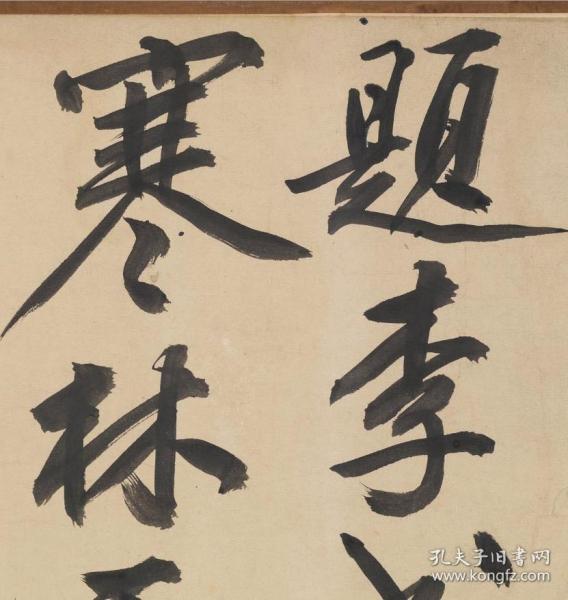 題李
寒林
孔夫子旧书网
www.kongfz.com